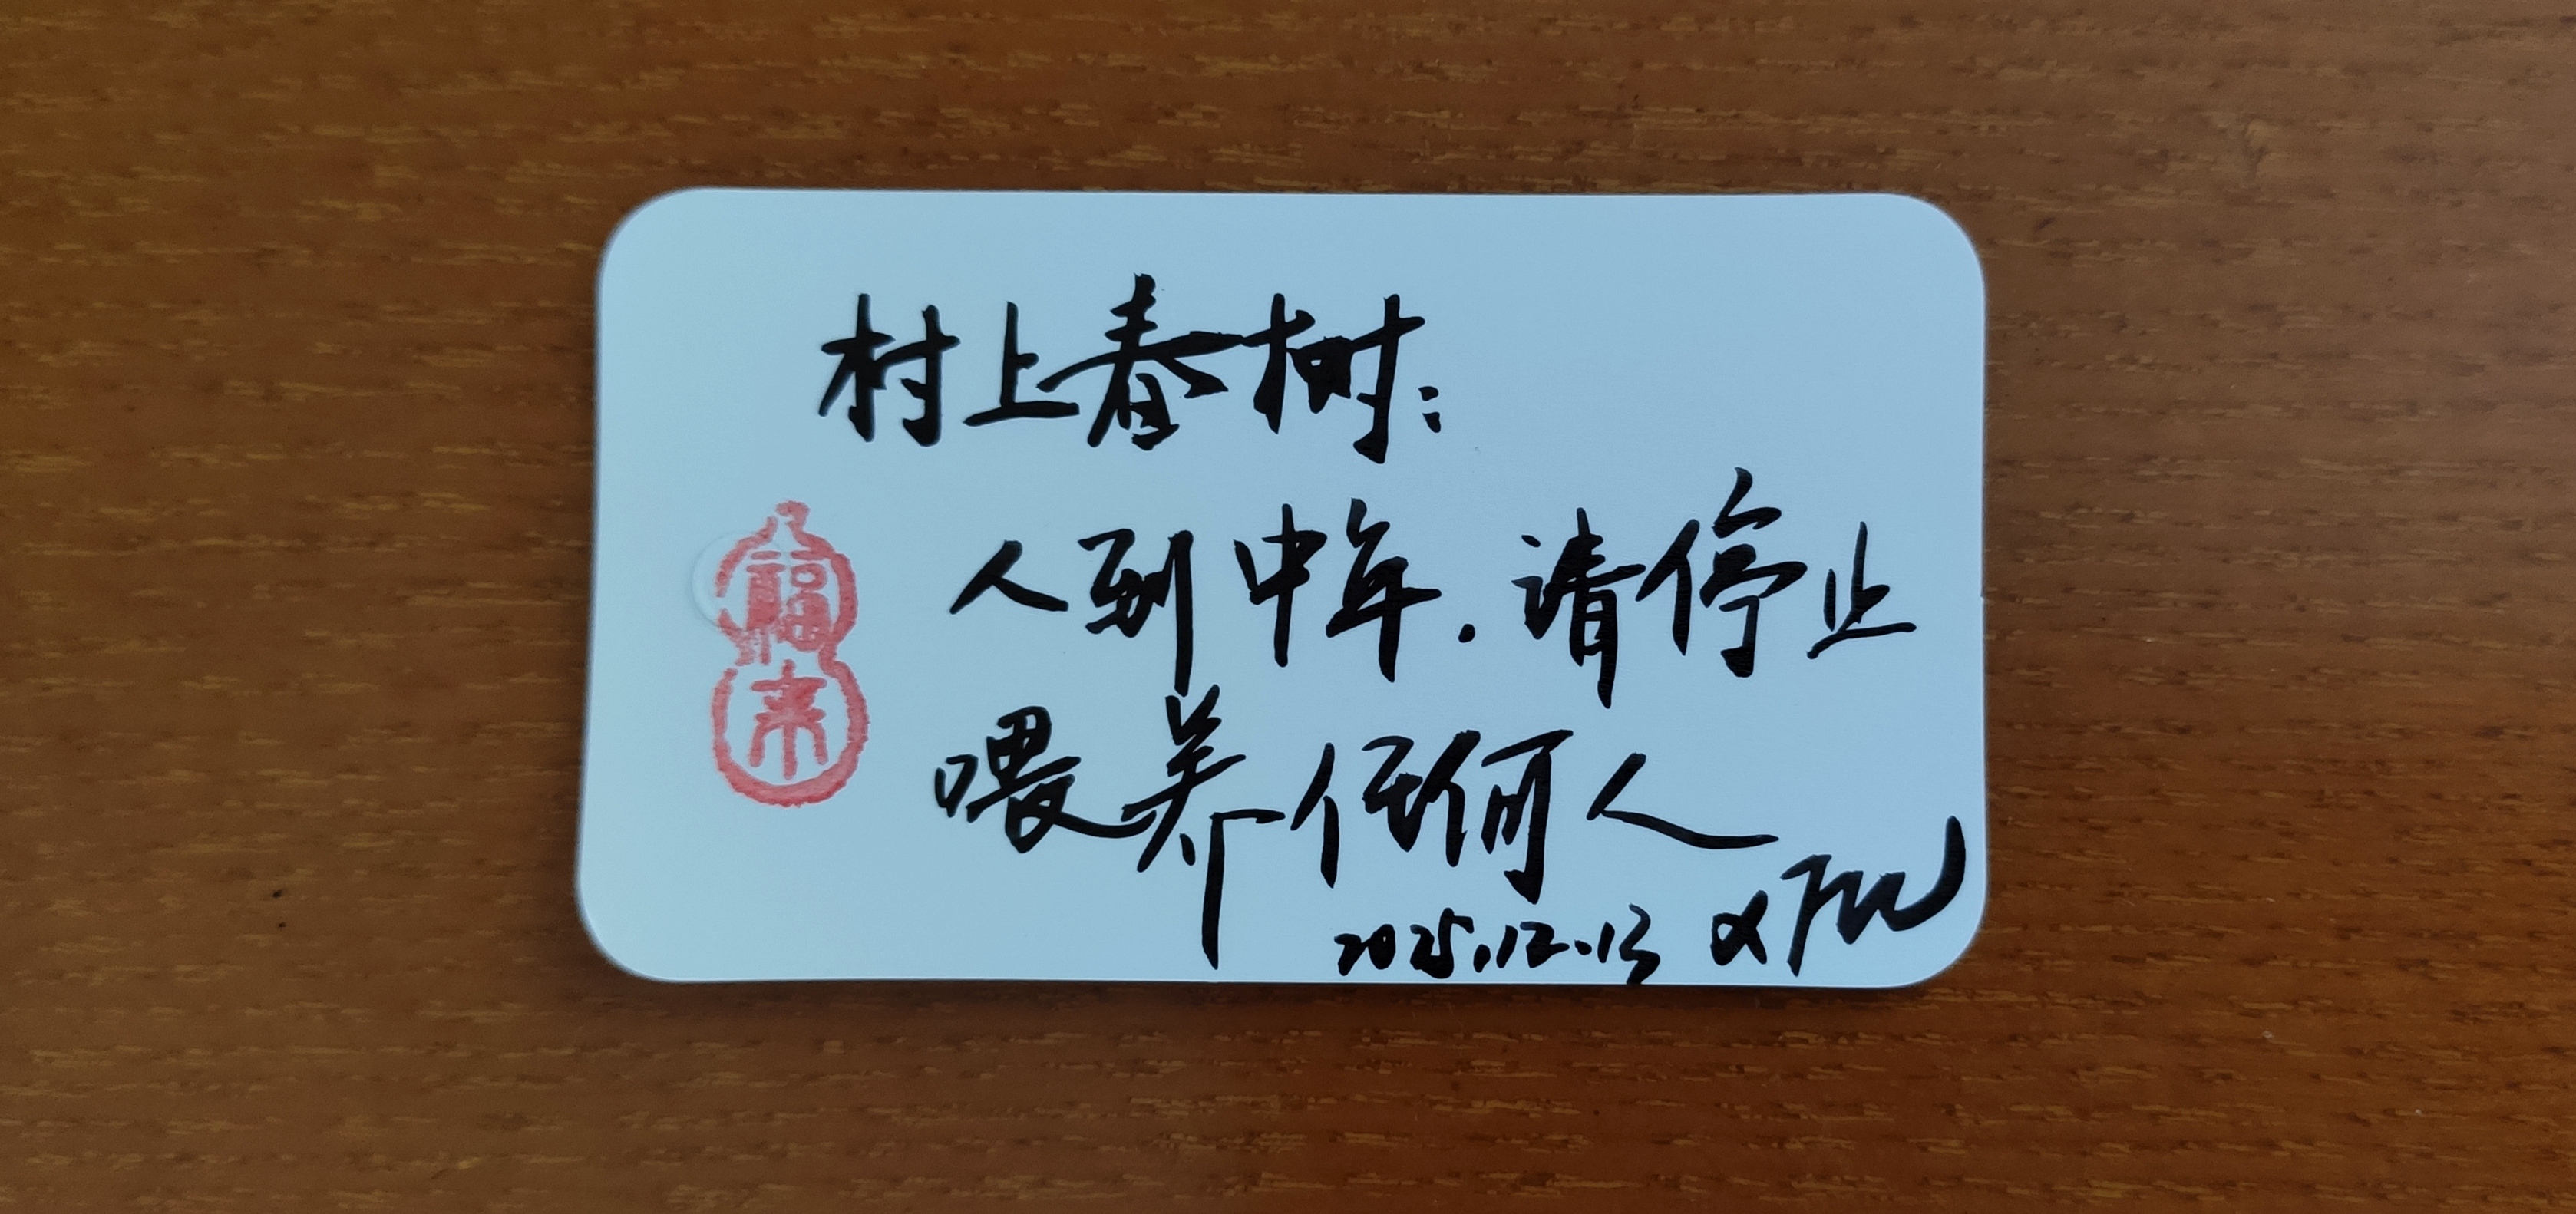 村上春树：
人到中年.请停止
喂养任何人
2025.12.13
福
来